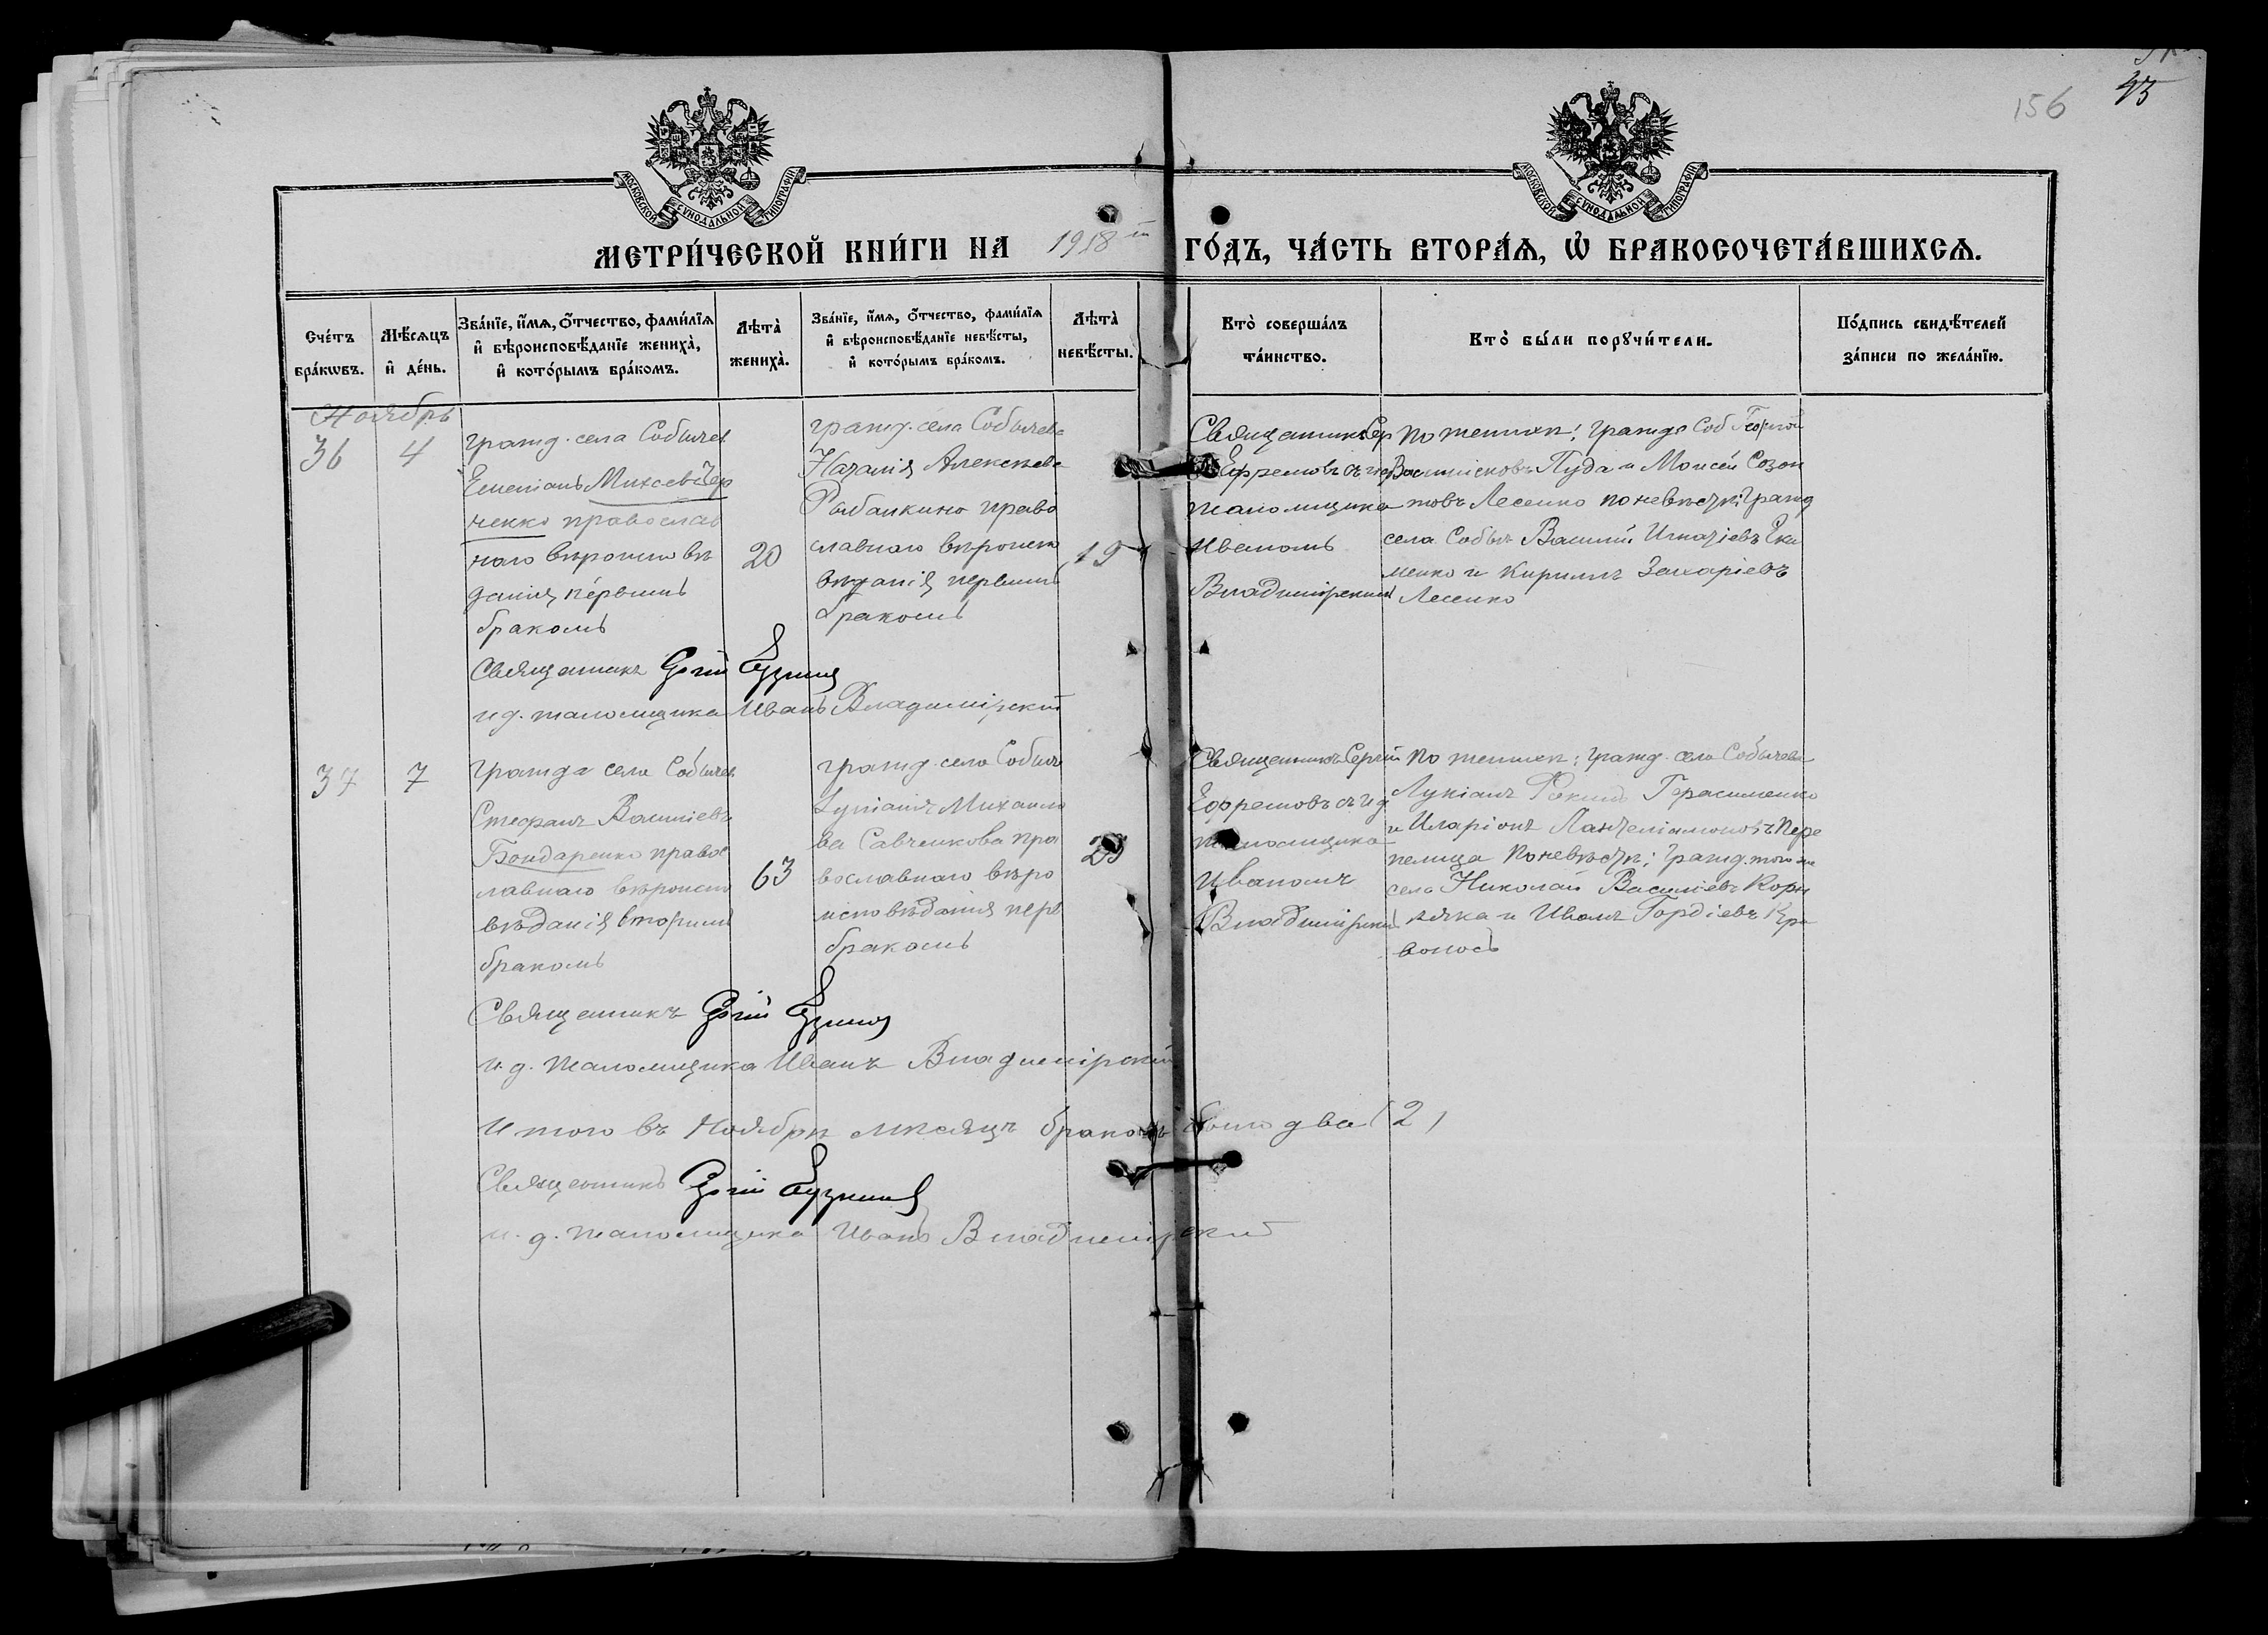 156
43
МОСКОВСКОЙ СѴНОДАЛЬНОЙ ТИПОГРАФІИ
МОСКОВСКОЙ СѴНОДАЛЬНОЙ ТИПОГРАФІИ
МЕТРИ́ЧЕСКОЙ КНИ́ГИ НА 1918 й ГО́ДЪ, ЧА́СТЬ ВТОРА́Я, Ѡ҆ БРАКОСОЧЕТА́ВШИХСЯ.
Сче́тъ бра́кѡвъ.
Мѣ́сяцъ и҆ де́нь.
Зва́нїе, и҆́мя, ѻ҆́тчество, фами́лїя и҆ вѣроисповѣ́данїе жениха̀, и҆ кото́рымъ бра́комъ.
Лѣта̀ жениха̀.
Зва́нїе, и҆́мя, ѻ҆́тчество, фами́лїя и҆ вѣроисповѣ́данїе невѣ́сты, и҆ кото́рымъ бра́комъ.
Лѣта̀ невѣ́сты.
Кто̀ соверша́лъ та́инство.
Кто̀ бы́ли порꙋчи́тели.
По́дпись свидѣ́телей за́писи по жела́нїю.
Ноябрь
36
4
гражд. села Собычев
Емеліанъ Михеевъ Чер
ненко православ
наго вѣроисповѣ
данія первымъ
бракомъ
20
гражд. села Собычева
Наталія Алексѣева
Рыбалкина право
славнаго вѣроиспо
вѣданія первымъ
бракомъ
19
Священникъ Сер
Ефремовъ съ и д
псаломщика
Иваномъ
Владимірскимъ
По женихѣ: гражда Соб Георгій
Пуда и Моисей Созон
товъ Лесенко по невѣстѣ: Гражд
села Собыч Василий Игнатіевъ Яки
менко и Кириллъ Захаріевъ
Лесенко
Священникъ Сергій
и д. псаломщика Иванъ Владимірскій
37
7
гражда села Собычев
Стефанъ Василіевъ
Бондаренко правос
лавнаго вѣроиспо
вѣданія вторымъ
бракомъ
63
гражд. села Собыч
Михаило
ва Савченкова пра
вославнаго вѣро
исповѣданія перв
бракомъ
29
Священникъ Сергій
Ефремовъ съ и д
псаломщика
Иваномъ
Владимірским
По женихѣ: гражд. села Собычева
Лукіанъ Фокинъ Герасименко
и Иларіонъ Пантелімоновъ Пере
пелица По невѣстѣ: Гражд. того же
села Николай Василіевъ Корн
ячка и Иванъ Гордіевъ Кри
воносъ
Священникъ Сергій
и. д. псаломщика Иванъ Владимірскій
Итого въ Ноябрѣ мѣсяцѣ браковъ было два (2)
Священникъ Сергій
и. д. псаломщика Иванъ Владимірский